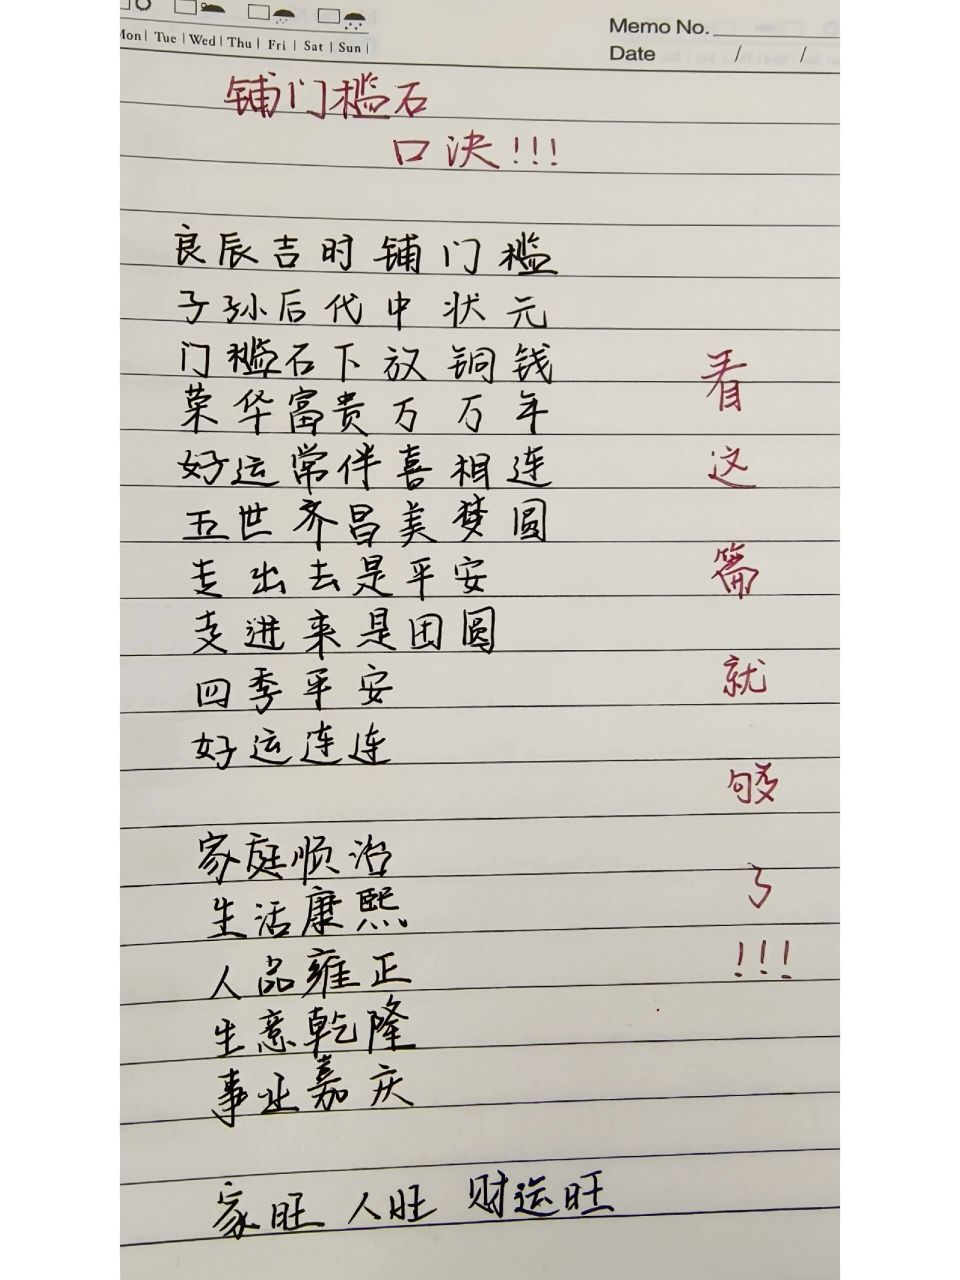 Mon Tue Wed Thu Fri Sat Sun
Memo No.
Date / /
铺门槛石
口决!!!
良辰吉时铺门槛
子孙后代中状元
门槛石下放铜钱
荣华富贵万万年
好运常伴喜相连
五世齐昌美梦圆
走出去是平安
走进来是团圆
四季平安
好运连连
家庭顺治
生活康熙
人品雍正
生意乾隆
事业嘉庆
家旺 人旺 财运旺
看这篇就够了!!!